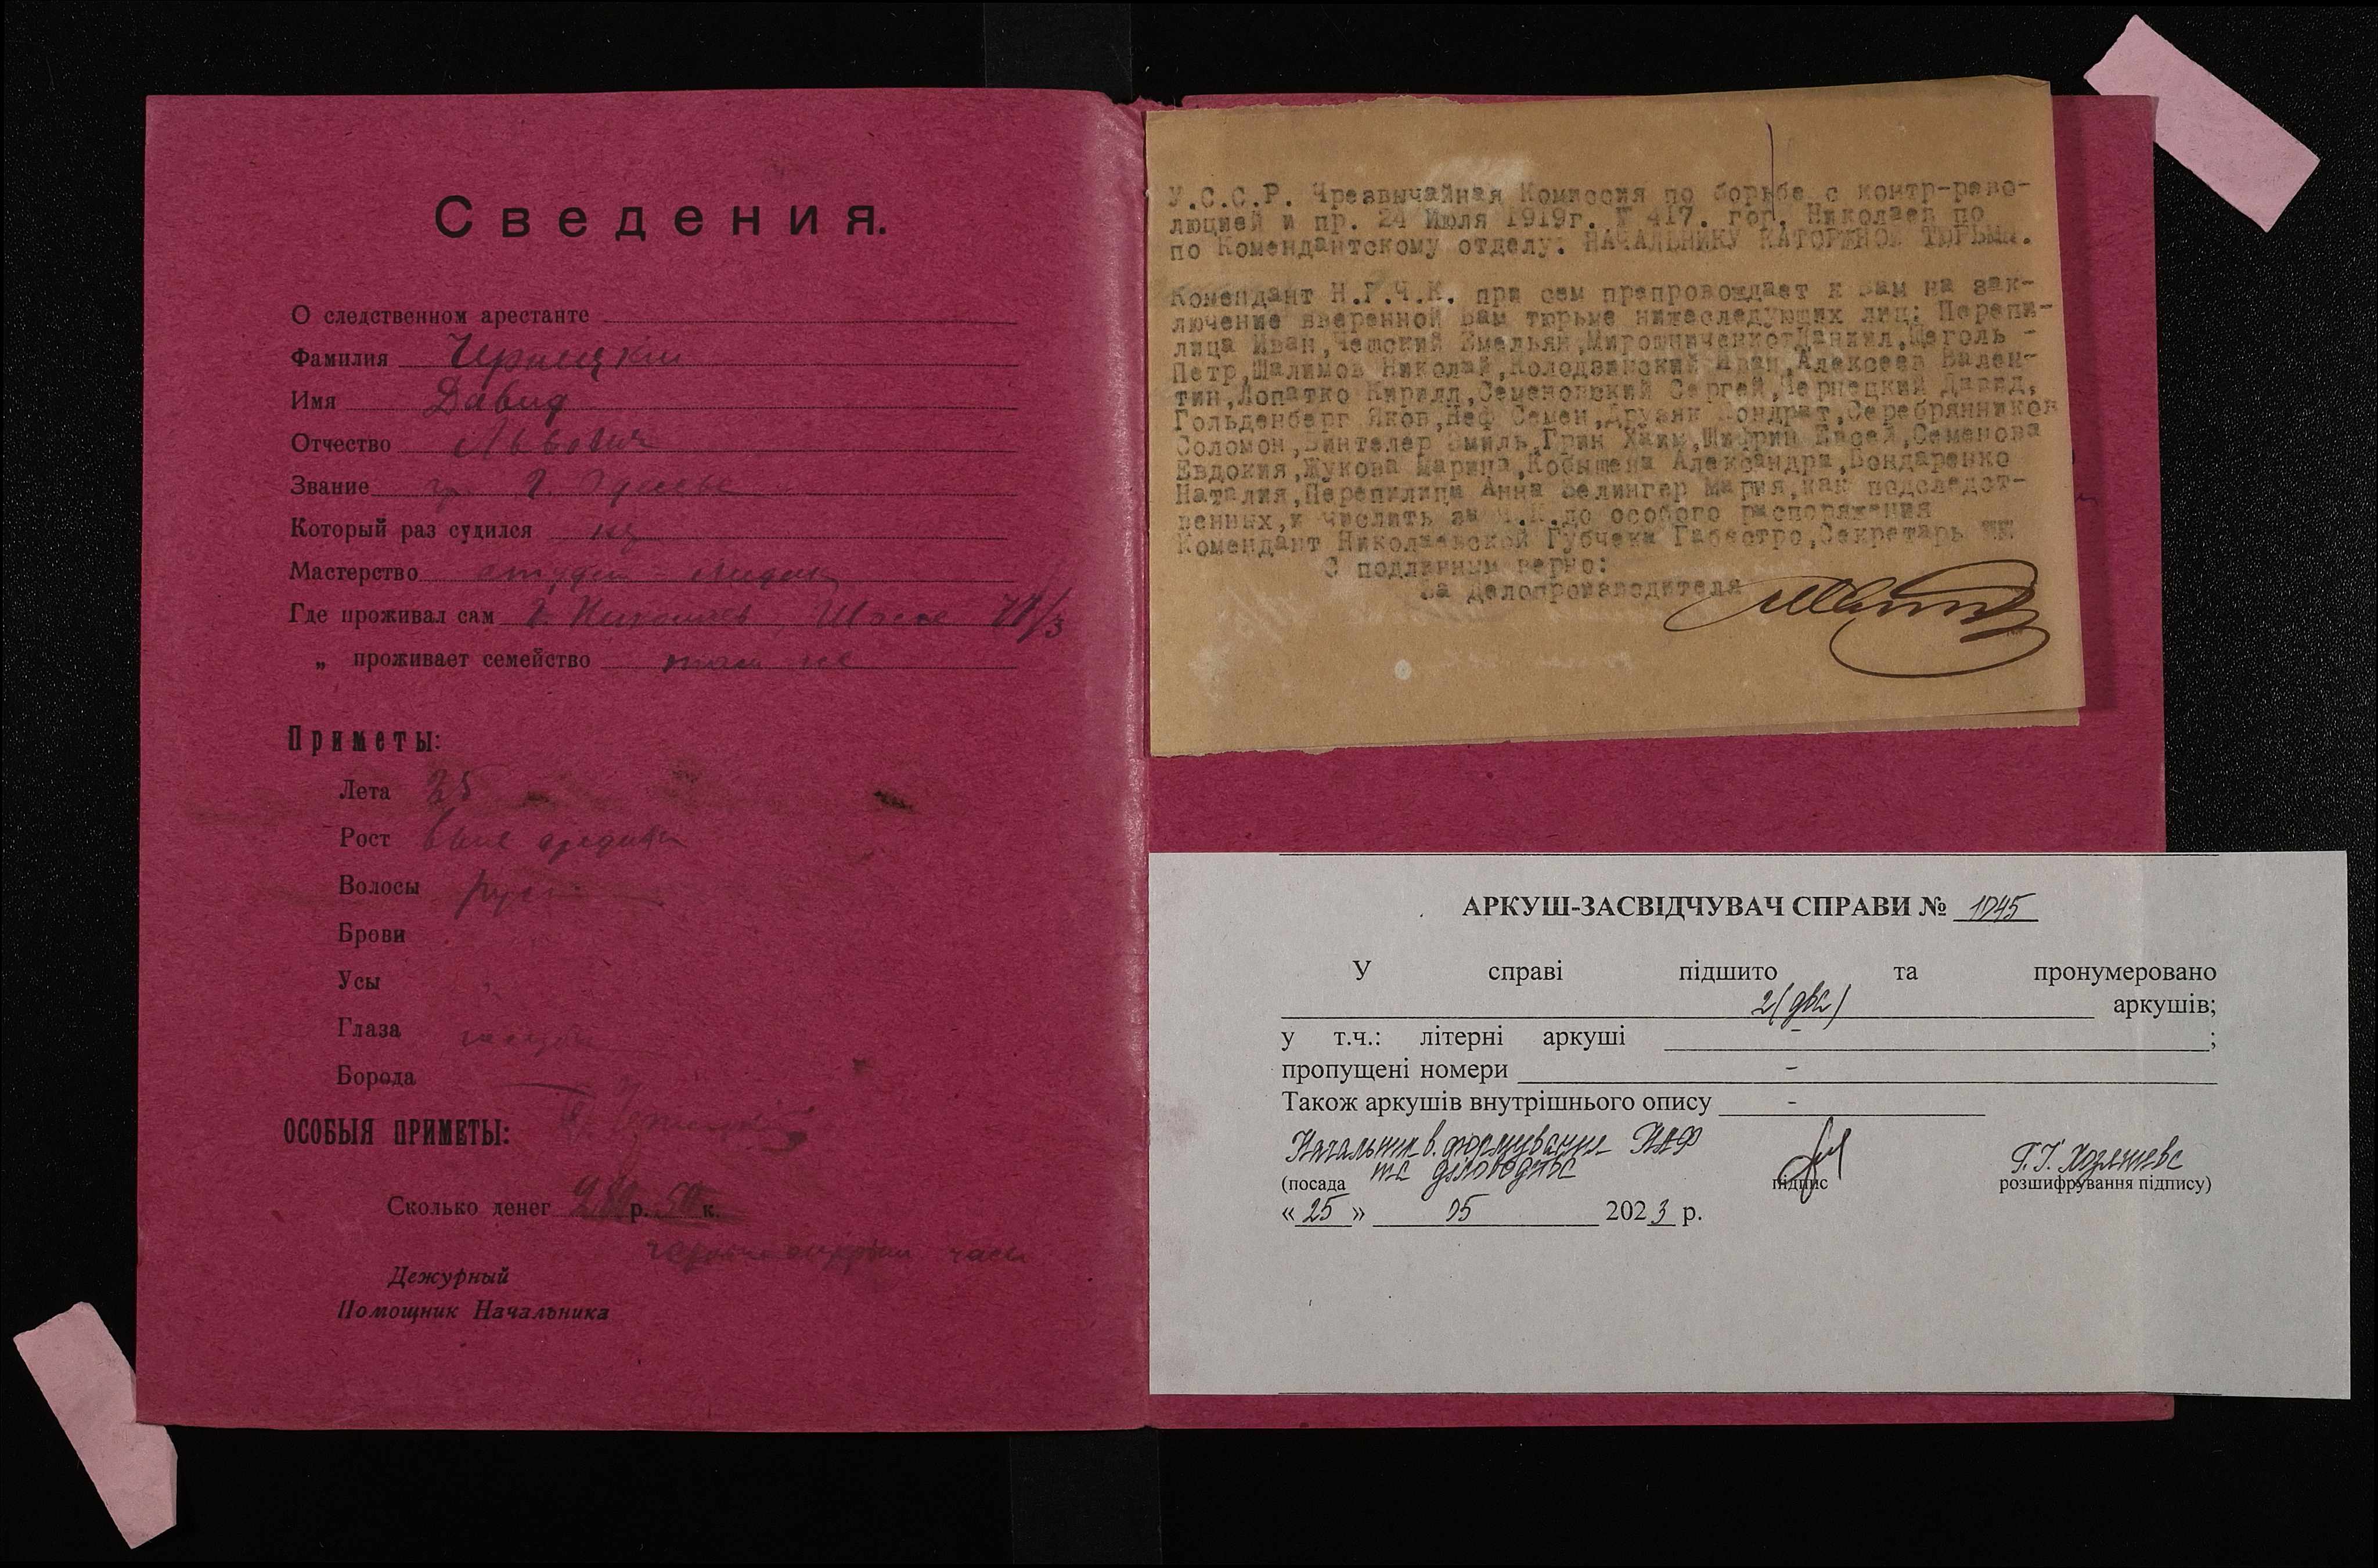 Сведения.
О следственном арестанте
Фамилия Чернецкий
Имя Давид
Отчество Львович
Звание гр. г. Одессы
Который раз судился
Мастерство студент медик
Где проживал сам г. Николаев, Шоссе
„ проживает семейство там же
Приметы:
Лета 25
Рост выше средня
Волосы
Брови
Усы
Глаза
Борода
ОСОБЫЯ ПРИМЕТЫ:
Сколько денег р. к.
часы
Дежурный
Помощник Начальника
У.С.С.Р. Чрезвычайная Комиссия по борьбе с контр-рево-
люцией и пр. 24 Июля 1919г. № 417. гор. Николаев по
по Комендантскому отделу. НАЧАЛЬНИКУ КАТОРЖНОЙ ТЮРЬМЫ.
Комендант Н.Г.Ч.К. при сем препровождает к Вам на зак-
лючение вверенной Вам тюрьме нижеследующих лиц: Перепи-
лица Иван, Чешский Емельян, Мирошниченко Даниил, Щеголь -
Петр, Шалимов Николай, Колодзинский Иван, Алексеев Вален-
тин, Лопатко Кирилл, Семеновский Сергей, Чернецкий Давид,
Гольденберг Яков, Неф Семен, Друзяк Кондрат, Серебрянников
Соломон, Винтелер Эмиль, Грин Хаим, Шифрин Евсей, Семенова
Евдокия, Жукова Марина, Кобышена Александра, Бондаренко
Наталия, Перепилица Анна Велингер Мария, как подследст-
венных, и числить за Ч.К. до особого распоряжения
Комендант Николаевской Губчека Габестро, Секретарь
С подлинным верно:
За Делопроизводителя
АРКУШ-ЗАСВІДЧУВАЧ СПРАВИ № 1045
У справі підшито та пронумеровано
2 (два) аркушів;
у т.ч.: літерні аркуші - ;
пропущені номери -
Також аркушів внутрішнього опису -
Начальник в. формування НАФ
та діловодства
(посада підпис розшифрування підпису)
« 25 » 05 2023 р.